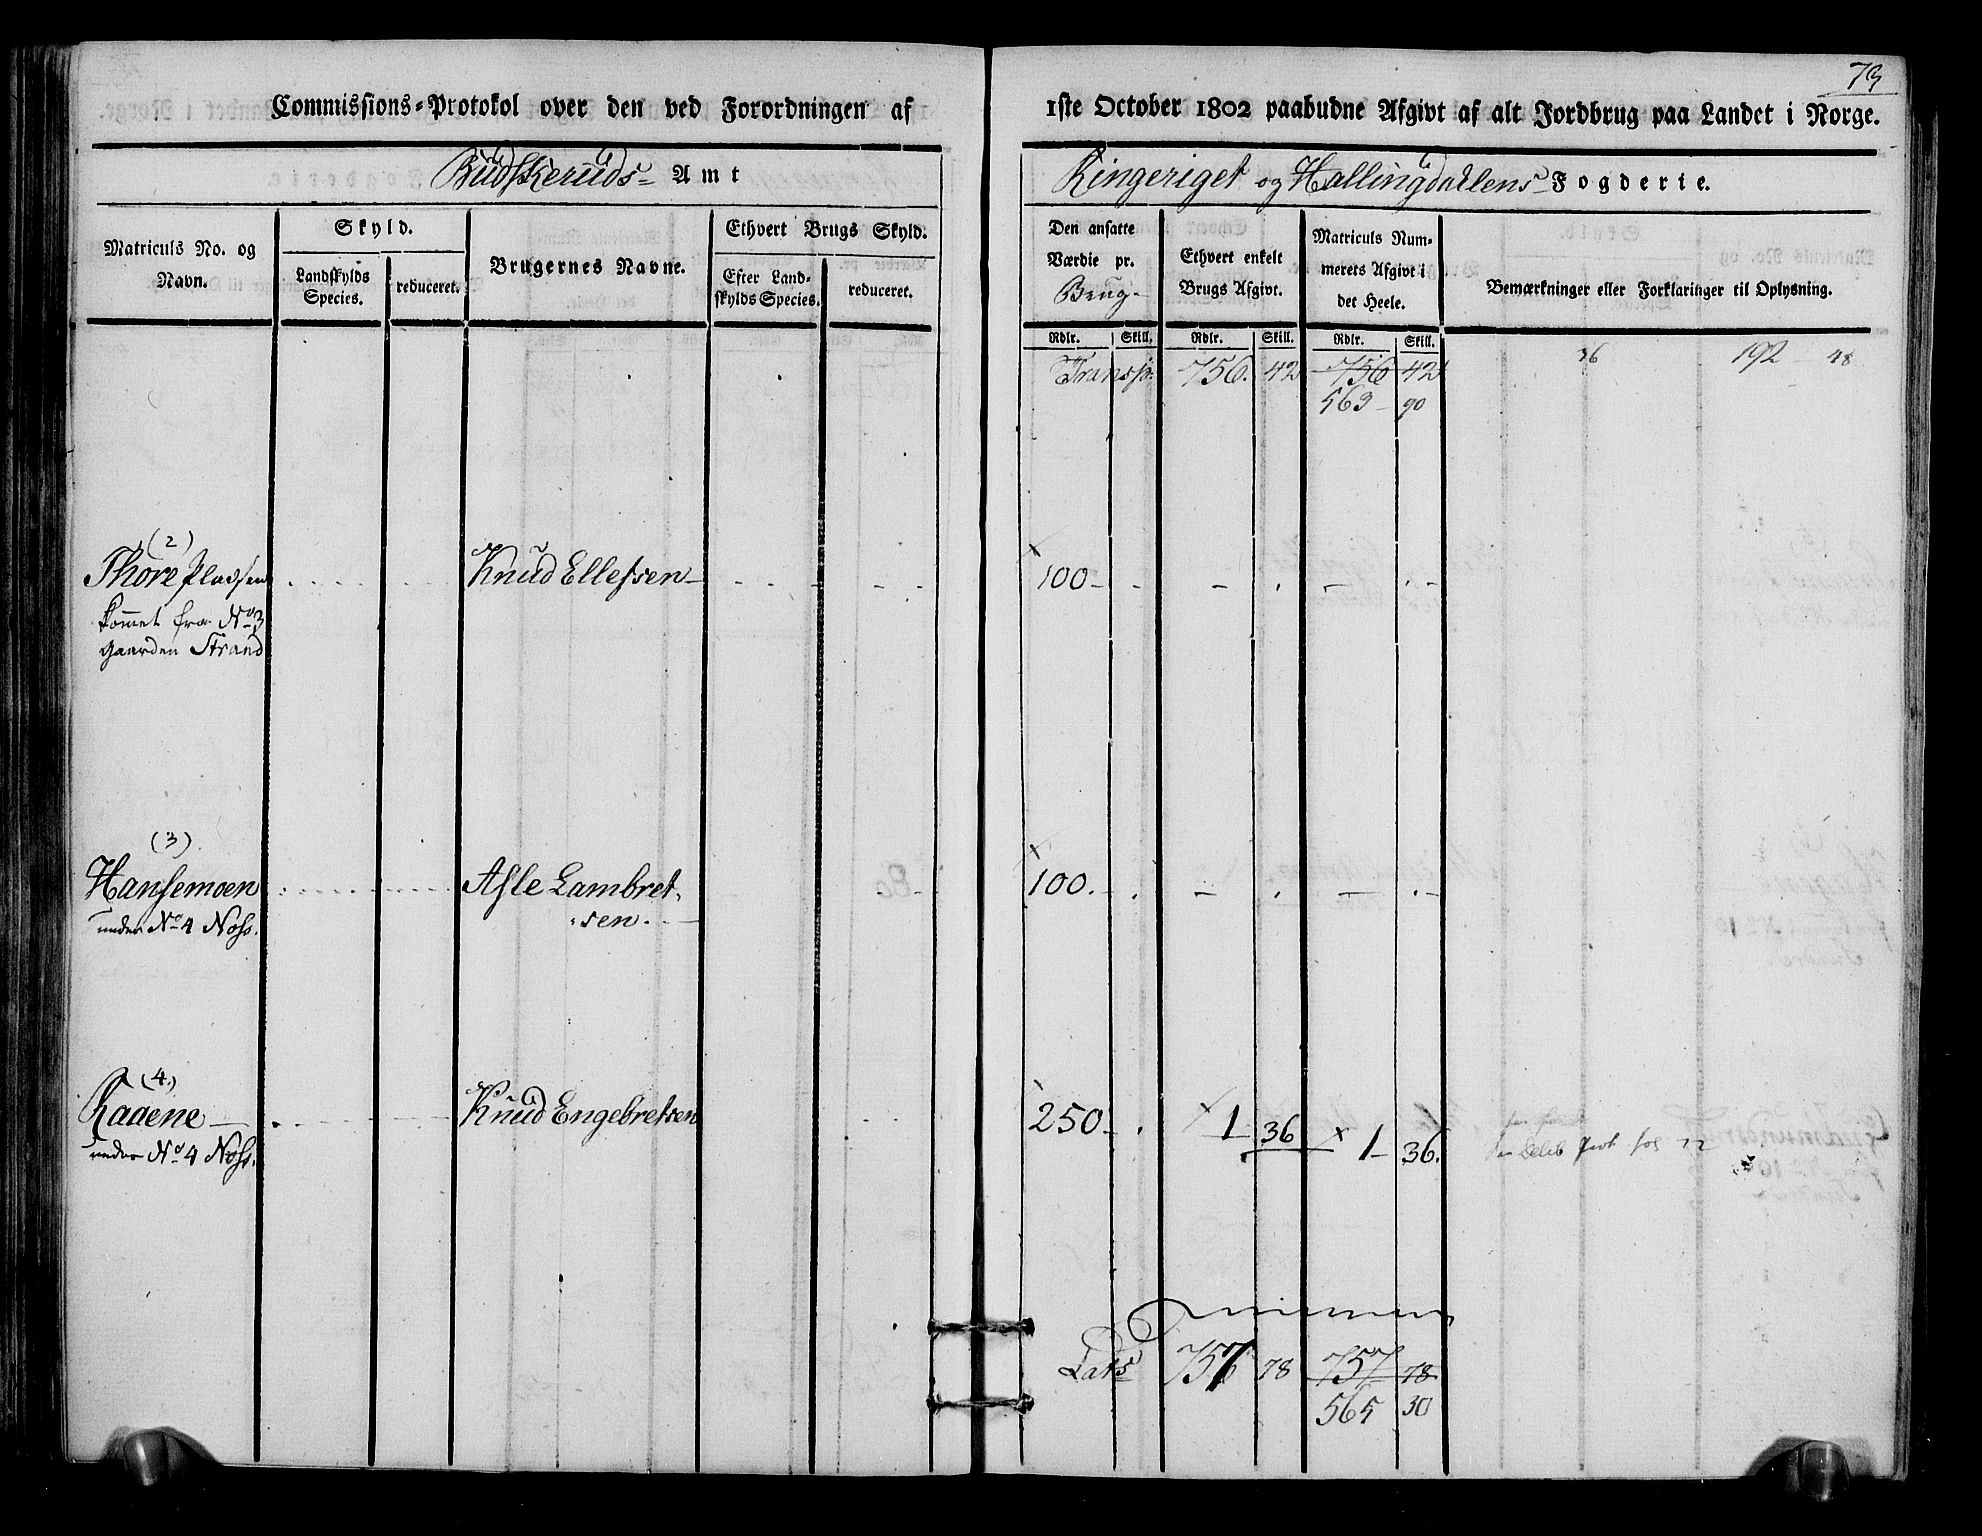 73
Commissions-Protokol over den ved Forordningen af 1ste October 1802 paabudne Afgivt af alt Jordbrug paa Landet i Norge.
Budskeruds- Amt
Ringeriget og Hallingdahlens Fogderie.
Matriculs No. og Navn.
Skyld.
Landskylds Species.
reduceret.
Brugernes Navne.
Ethvert Brugs Skyld.
Efter Landskylds Species.
reduceret.
Den ansatte Værdie pr. Brug-
Ethvert enkelt Brugs Afgivt.
Matriculs Nummerets Afgivt i det Heele.
Bemærkninger eller Forklaringer til Oplysning.
Rdlr. Skill. Rdlr. Skill. Rdlr. Skill.
Transp. 756. 42 756 42 36 192 48
563 - 90
(2)
Thore Pladsen Knud Ellefsen - 100 -
kommet fra No 3
Gaarden Strand
(3)
Hansemoen Asle Lambret- 100. -
under No 4 Noss. sen.
(4)
Raaene Knud Engebretsen 250 - 1 36 1 - 36.
under No 4 Noss. Delib Prot fol 22
Lats 757 78 757 78
565 30